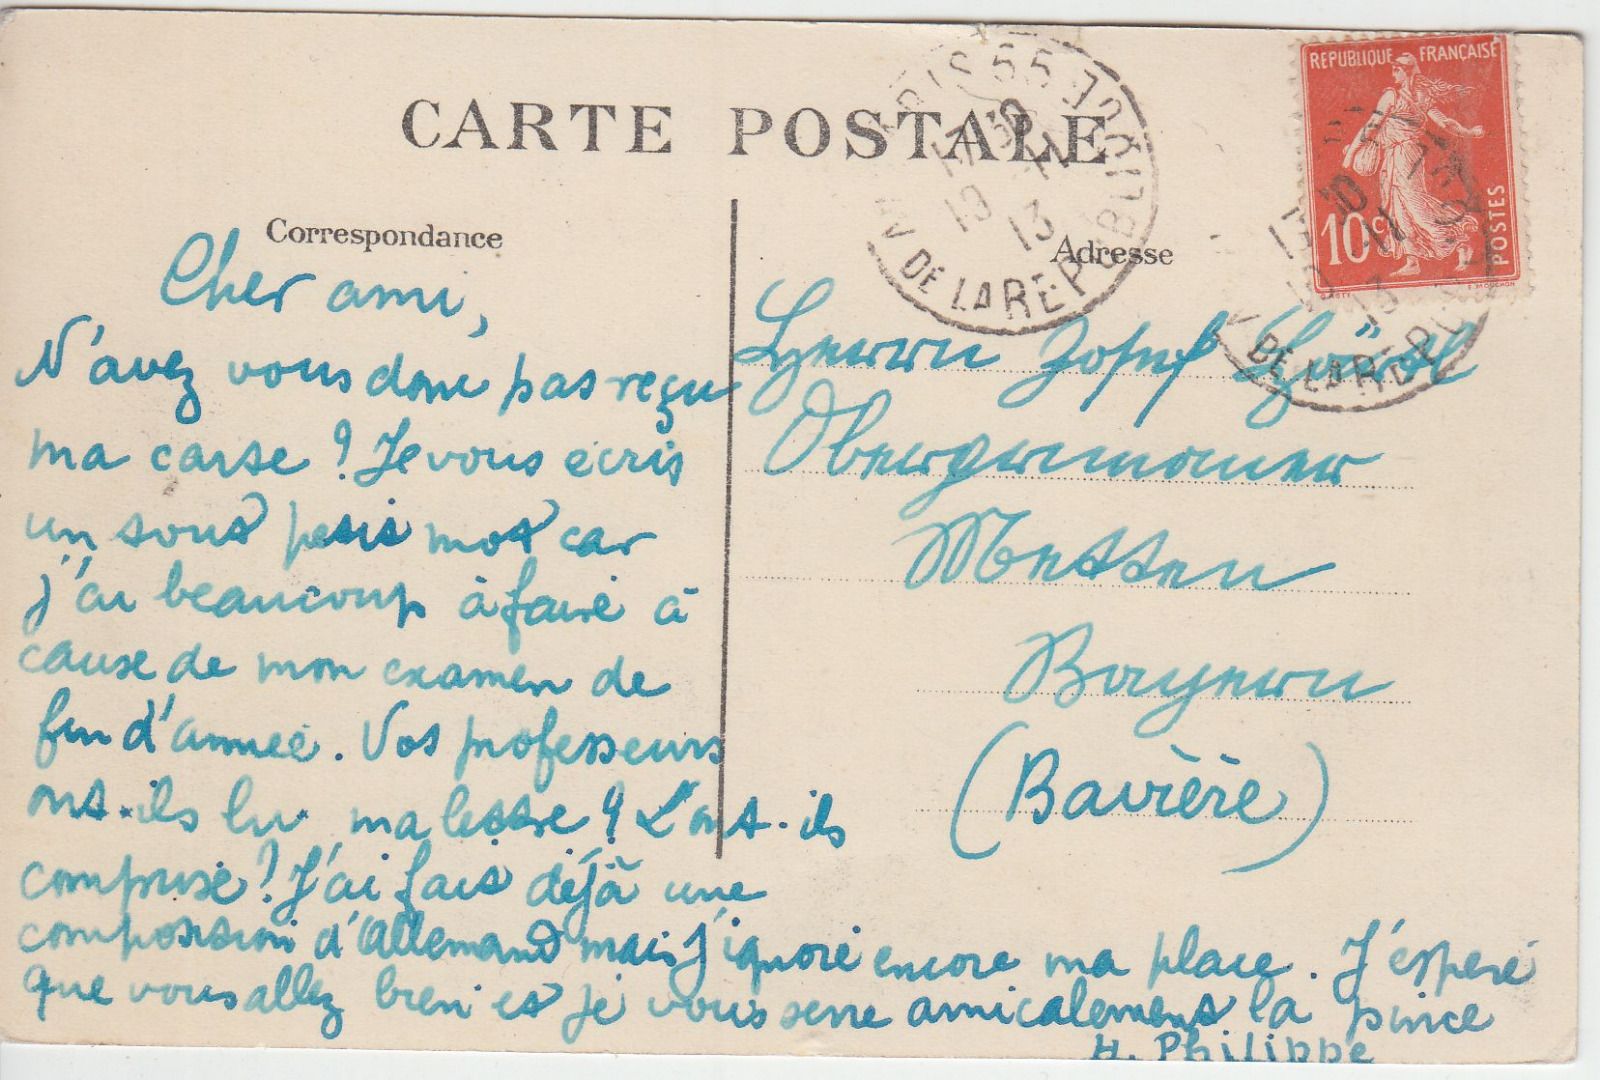 CARTE POSTALE
Correspondance
Adresse
REPUBLIQUE FRANÇAISE
10c
POSTES
PARIS 55
10 11
13
AV DE LA REPUBLIQUE
DE LA REPU
Cher ami,
N'avez vous donc pas reçu
ma carte ? Je vous écris
un tout petit mot car
j'ai beaucoup à faire à
cause de mon examen de
fin d'année. Vos professeurs
ont-ils lu ma lettre ? L'ont-ils
comprise ? J'ai fait déjà une
composition d'Allemand mais j'ignore encore ma place. J'espère
que vous allez bien et je vous serre amicalement la pince
H. Philippe
Herrn Josef
Metten
Bayern
(Bavière)